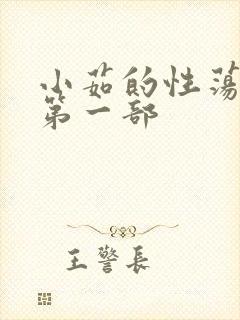 小茹的性荡
第一部
王警长